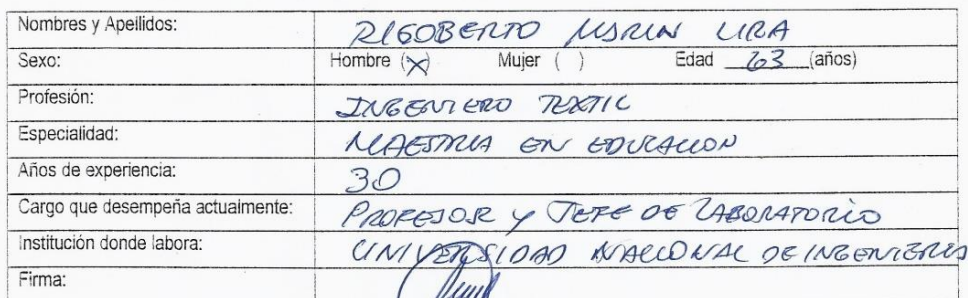 Nombres y Apellidos: RIGOBERTO MARIN LIRA
Sexo: Hombre (X) Mujer ( ) Edad 63 (años)
Profesión: INGENIERO TEXTIL
Especialidad: MAESTRIA EN EDUCACION
Años de experiencia: 30
Cargo que desempeña actualmente: PROFESOR Y JEFE DE LABORATORIO
Institución donde labora: UNIVERSIDAD NACIONAL DE INGENIERIA
Firma: